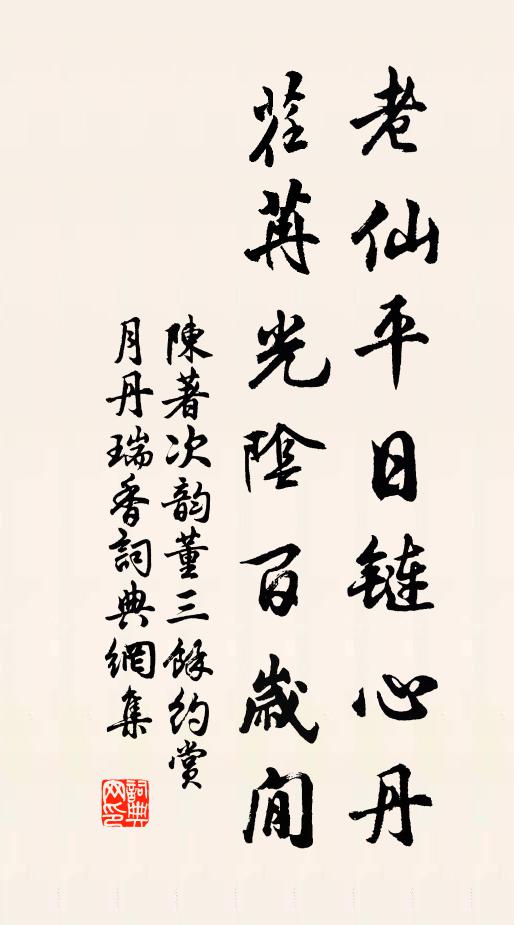 老仙平日鏈心丹
荏苒光陰百歲間
陳著次韵董三餘約賞
月丹瑞香詞典網集
詞典
网印